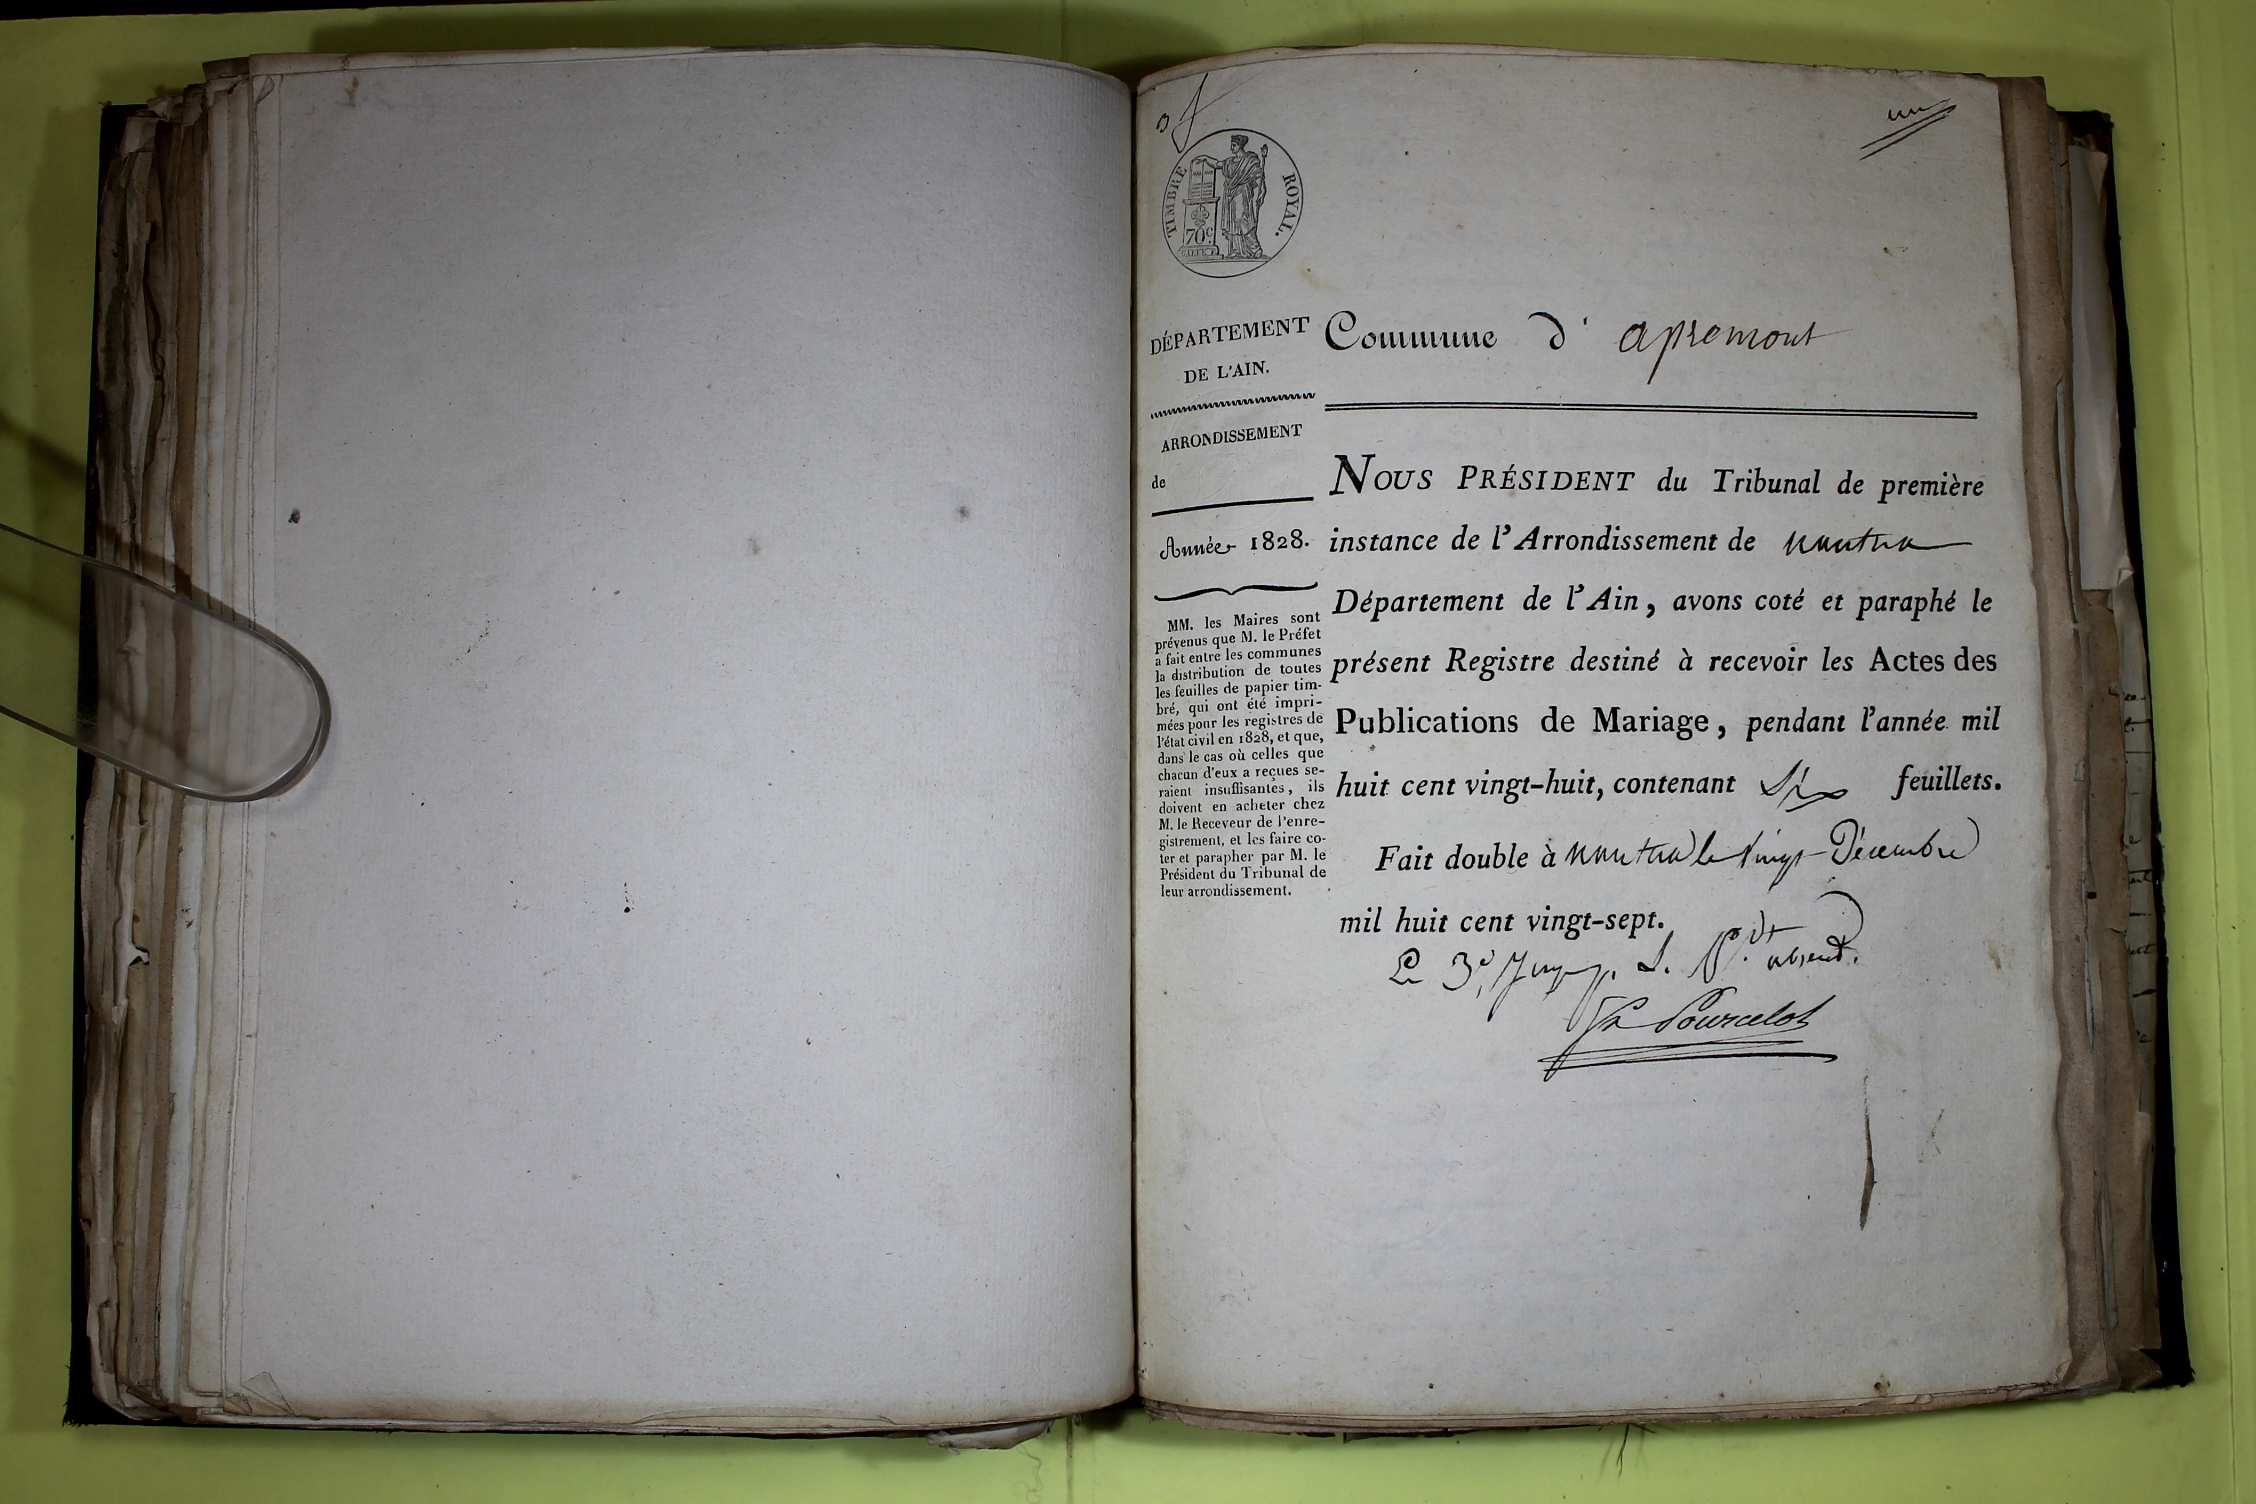 3
un
TIMBRE ROYAL.
70c
DÉPARTEMENT
DE L'AIN.
Commune d' apremont
ARRONDISSEMENT
de
Année 1828.
MM. les Maires sont
prévenus que M. le Préfet
a fait entre les communes
la distribution de toutes
les feuilles de papier tim-
bré, qui ont été impri-
mées pour les registres de
l'état civil en 1828, et que,
dans le cas où celles que
chacun d'eux a reçues se-
raient insuffisantes, ils
doivent en acheter chez
M. le Receveur de l'enre-
gistrement, et les faire co-
ter et parapher par M. le
Président du Tribunal de
leur arrondissement.
NOUS PRÉSIDENT du Tribunal de première
instance de l'Arrondissement de nantua
Département de l'Ain, avons coté et paraphé le
présent Registre destiné à recevoir les Actes des
Publications de Mariage, pendant l'année mil
huit cent vingt-huit, contenant Six feuillets.
Fait double à nantua le vingt Décembre
mil huit cent vingt-sept.
Le 3e Juge, P.dt absent.
Pourcelot